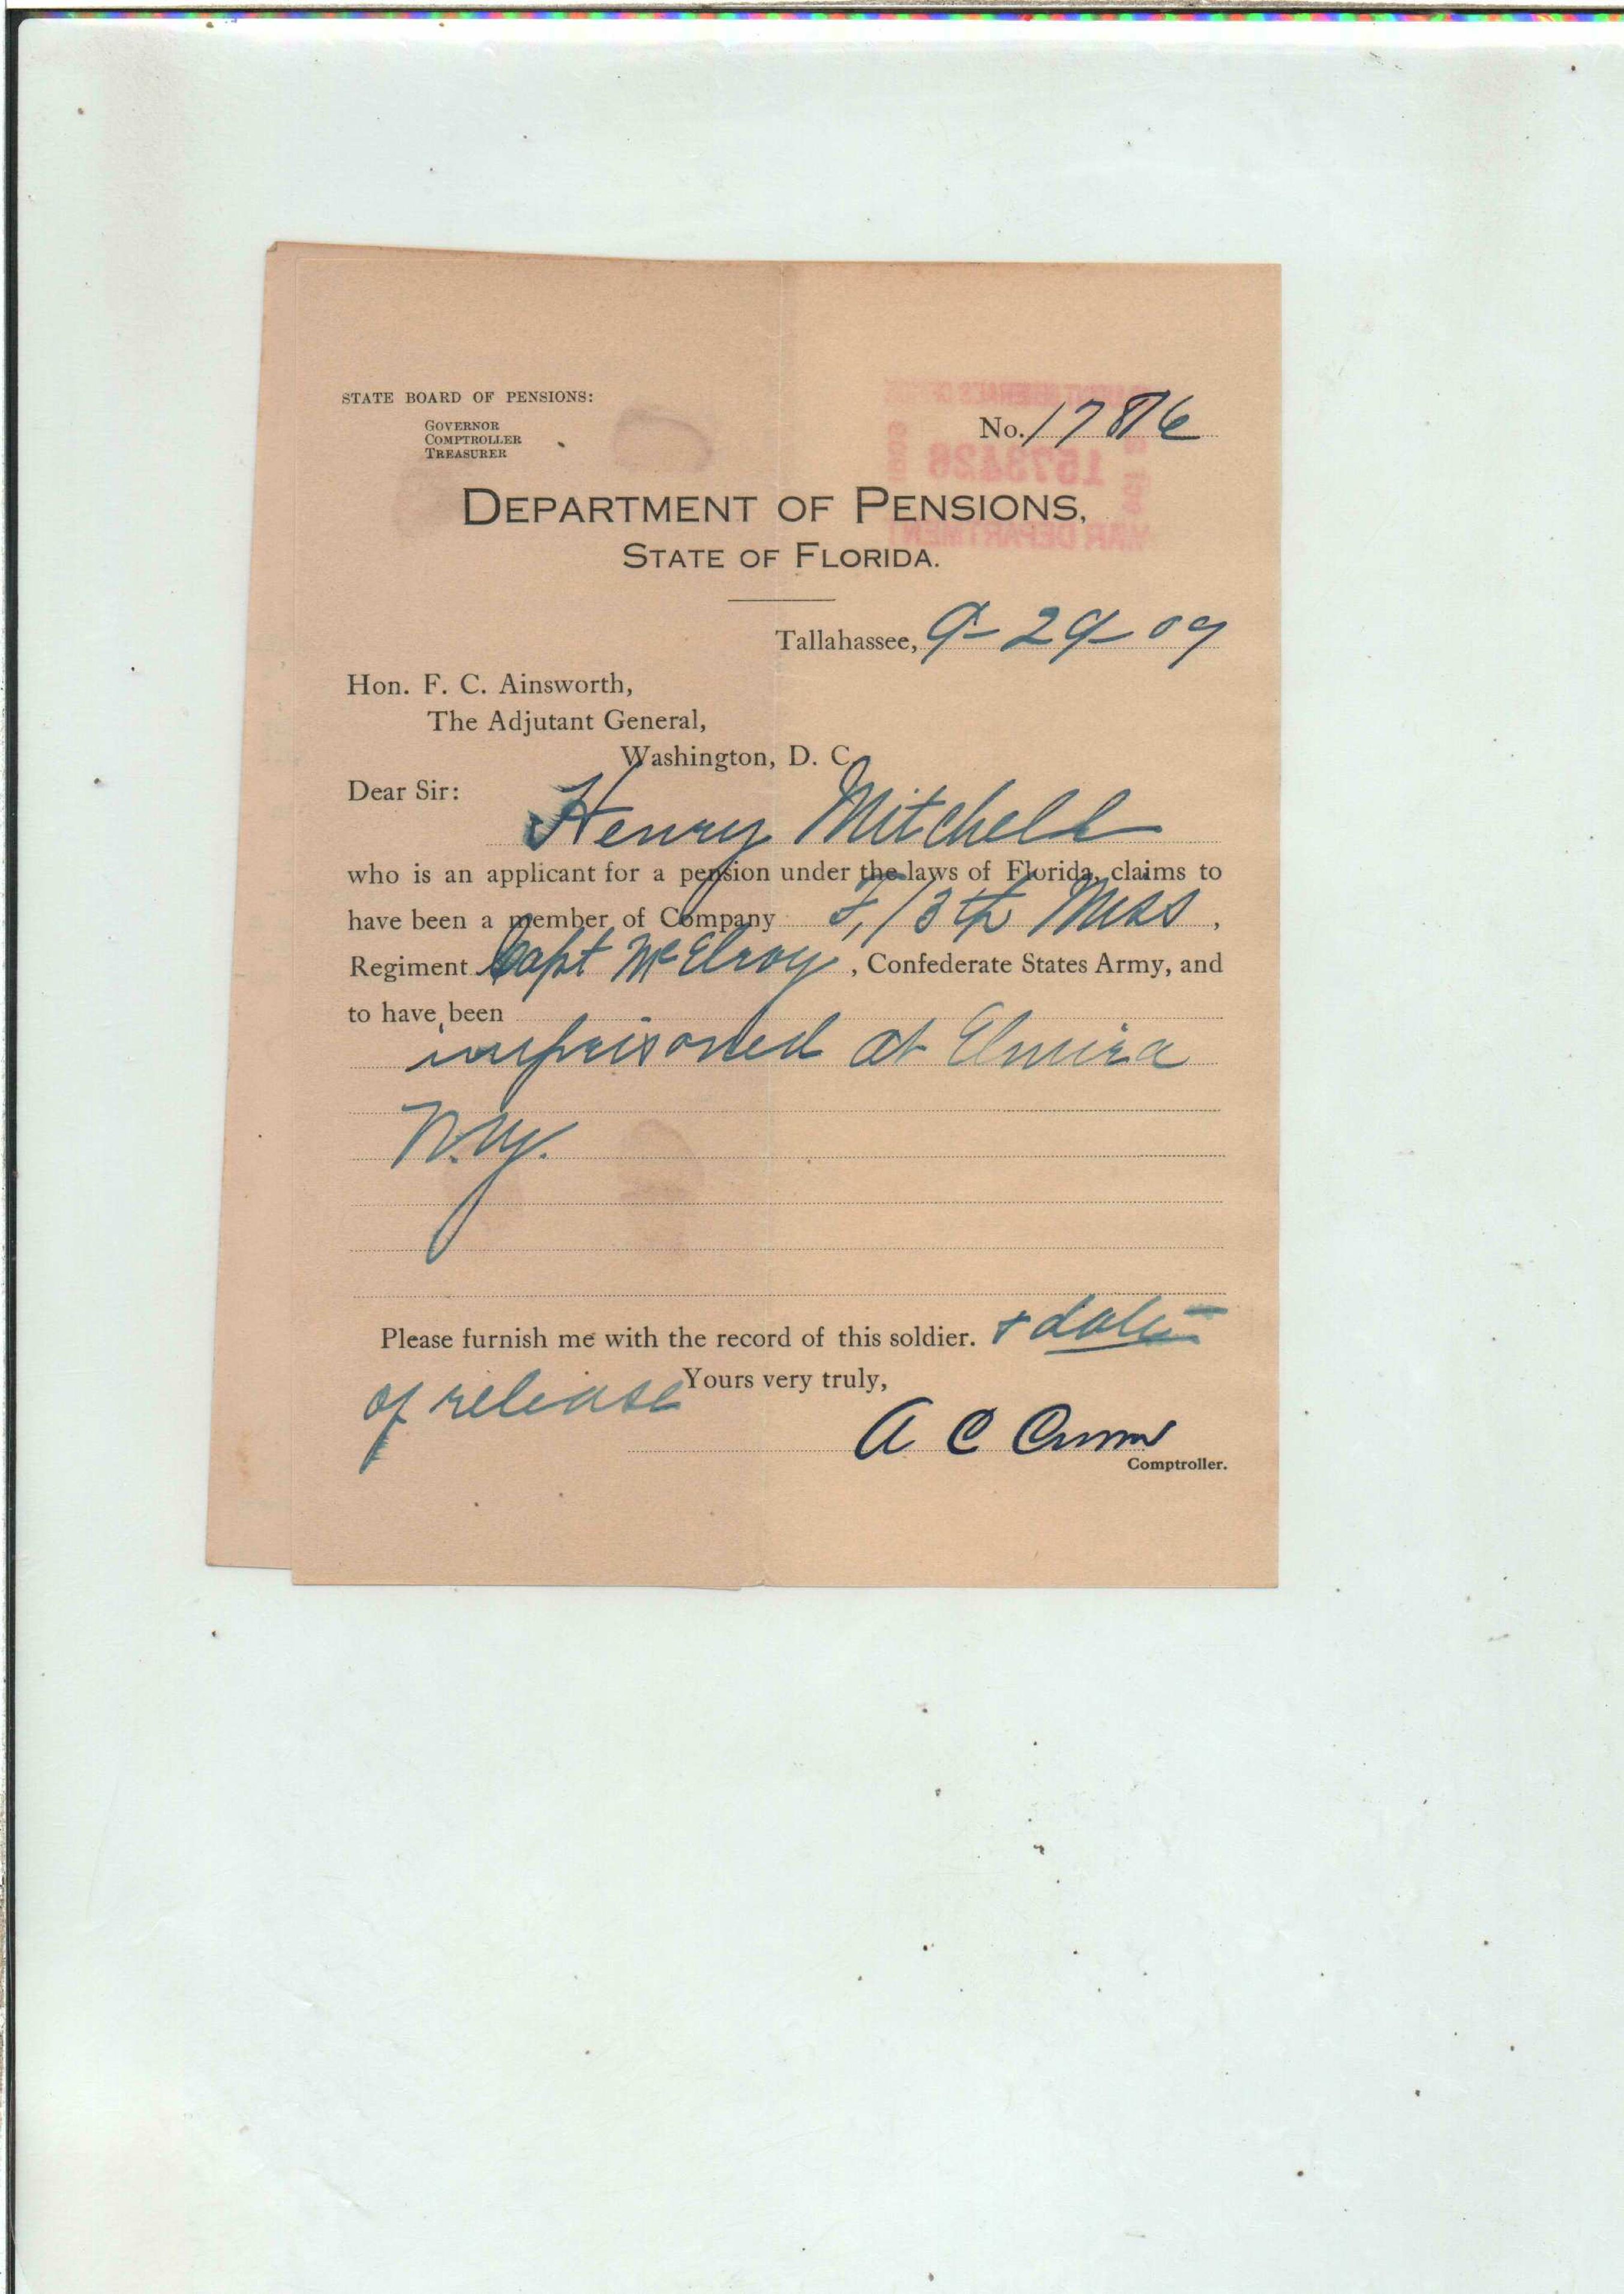 STATE BOARD OF PENSIONS:
GOVERNOR
COMPTROLLER
TREASURER
No. 17816
1573426
WAR DEPARTMENT
DEPARTMENT OF PENSIONS,
STATE OF FLORIDA.
Tallahassee, 9-29-09
Hon. F. C. Ainsworth,
The Adjutant General,
Washington, D. C.
Dear Sir:
Henry Mitchell
who is an applicant for a pension under the laws of Florida, claims to
have been a member of Company F, 13th Miss,
Regiment Capt McElroy, Confederate States Army, and
to have been
imprisoned at Elmira
N.Y.
Please furnish me with the record of this soldier. + date
of release Yours very truly,
A C Croom
Comptroller.